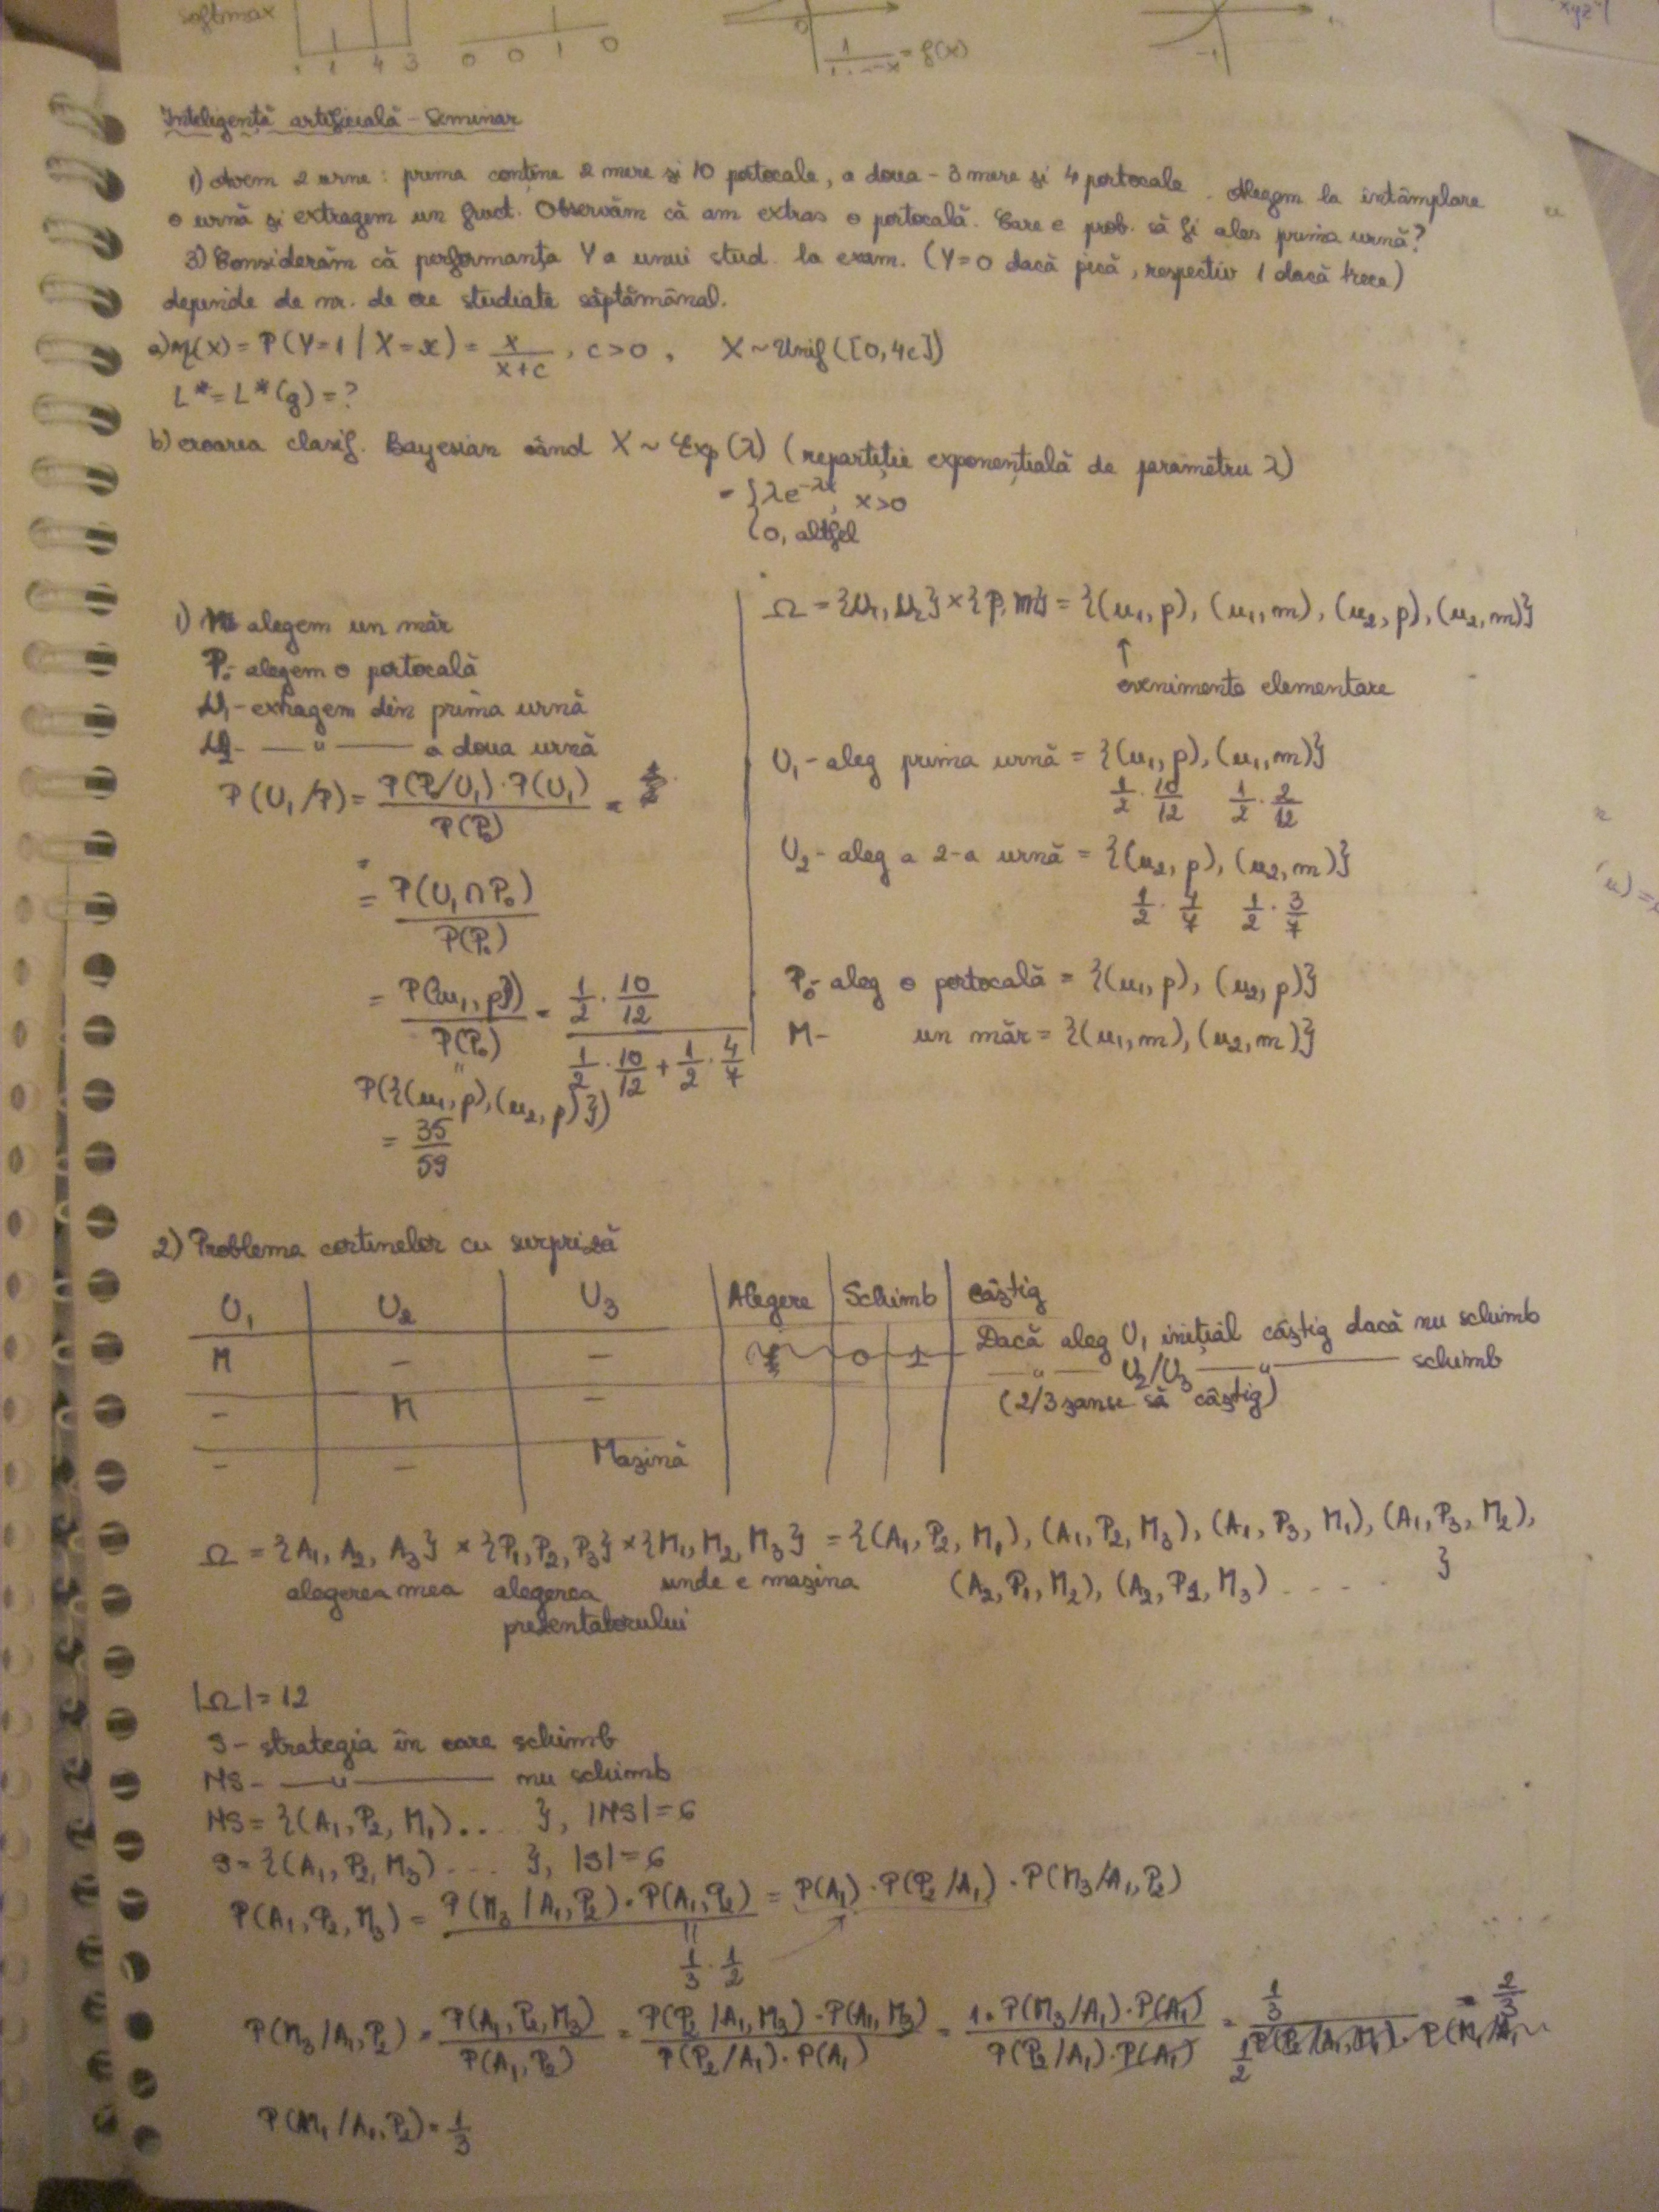 softmax
1 4 3 0 0 1 0
0
= f(x)
-1
xyz
Inteligență artificială - Seminar
1) Avem 2 urne : prima conține 2 mere și 10 portocale, a doua - 3 mere și 4 portocale. Alegem la întâmplare
o urnă și extragem un fruct. Observăm că am extras o portocală. Care e prob. să fi ales prima urnă?
3) Considerăm că performanța Y a unui stud. la exam. (Y=0 dacă pică, respectiv 1 dacă trece)
depinde de nr. de ore studiate săptămânal.
a) η(x) = P(Y=1 | X=x) = x/(x+c), c>0, X ~ Unif([0,4c])
L* = L*(g) = ?
b) eroarea clasif. Bayesian când X ~ Exp(λ) (repartiție exponențială de parametru λ)
= { λe^(-λx), x>0
0, altfel
1) M- alegem un măr
P₀- alegem o portocală
U₁- extragem din prima urnă
U₂- —"— a doua urnă
P(U₁/P) = P(P₀/U₁)·P(U₁) / P(P₀) =
= P(U₁∩P₀) / P(P₀)
= P({u₁,p}) / P(P₀) = (1/2 · 10/12) / (1/2 · 10/12 + 1/2 · 4/7)
P({(u₁,p),(u₂,p)})
= 35/59
Ω = {U₁,U₂}×{p,m} = {(u₁,p), (u₁,m), (u₂,p), (u₂,m)}
↑
evenimente elementare
U₁ - aleg prima urnă = {(u₁,p), (u₁,m)}
1/2 · 10/12 1/2 · 2/12
U₂ - aleg a 2-a urnă = {(u₂,p), (u₂,m)}
1/2 · 4/7 1/2 · 3/7
P₀- aleg o portocală = {(u₁,p), (u₂,p)}
M- un măr = {(u₁,m), (u₂,m)}
2) Problema cortinelor cu surpriză
U₁ U₂ U₃ Alegere Schimb Câștig
M - - 0 1 Dacă aleg U₁ inițial câștig dacă nu schimb
—"— U₂/U₃ —"— schimb
- M - (2/3 șanse să câștig)
- - Mașină
Ω = {A₁, A₂, A₃} × {P₁,P₂,P₃} × {M₁,M₂,M₃} = {(A₁,P₂,M₁), (A₁,P₂,M₃), (A₁,P₃,M₁), (A₁,P₃,M₂),
alegerea mea alegerea unde e mașina (A₂,P₁,M₂), (A₂,P1,M₃) ..... }
prezentatorului
|Ω| = 12
S - strategia în care schimb
NS - —"— nu schimb
NS = {(A₁,P₂,M₁)... }, |NS| = 6
S = {(A₁,P₂,M₃) .... }, |S| = 6
P(A₁,P₂,M₃) = P(M₃/A₁,P₂)·P(A₁,P₂) = P(A₁)·P(P₂/A₁)·P(M₃/A₁,P₂)
1/3 · 1/2
P(M₃/A₁,P₂) = P(A₁,P₂,M₃)/P(A₁,P₂) = P(P₂/A₁,M₃)·P(A₁,M₃) / P(P₂/A₁)·P(A₁) = 1·P(M₃/A₁)·P(A₁) / P(P₂/A₁)·P(A₁) = 1/3 / 1/2 = 2/3
P(M₁/A₁,P₂) = 1/3